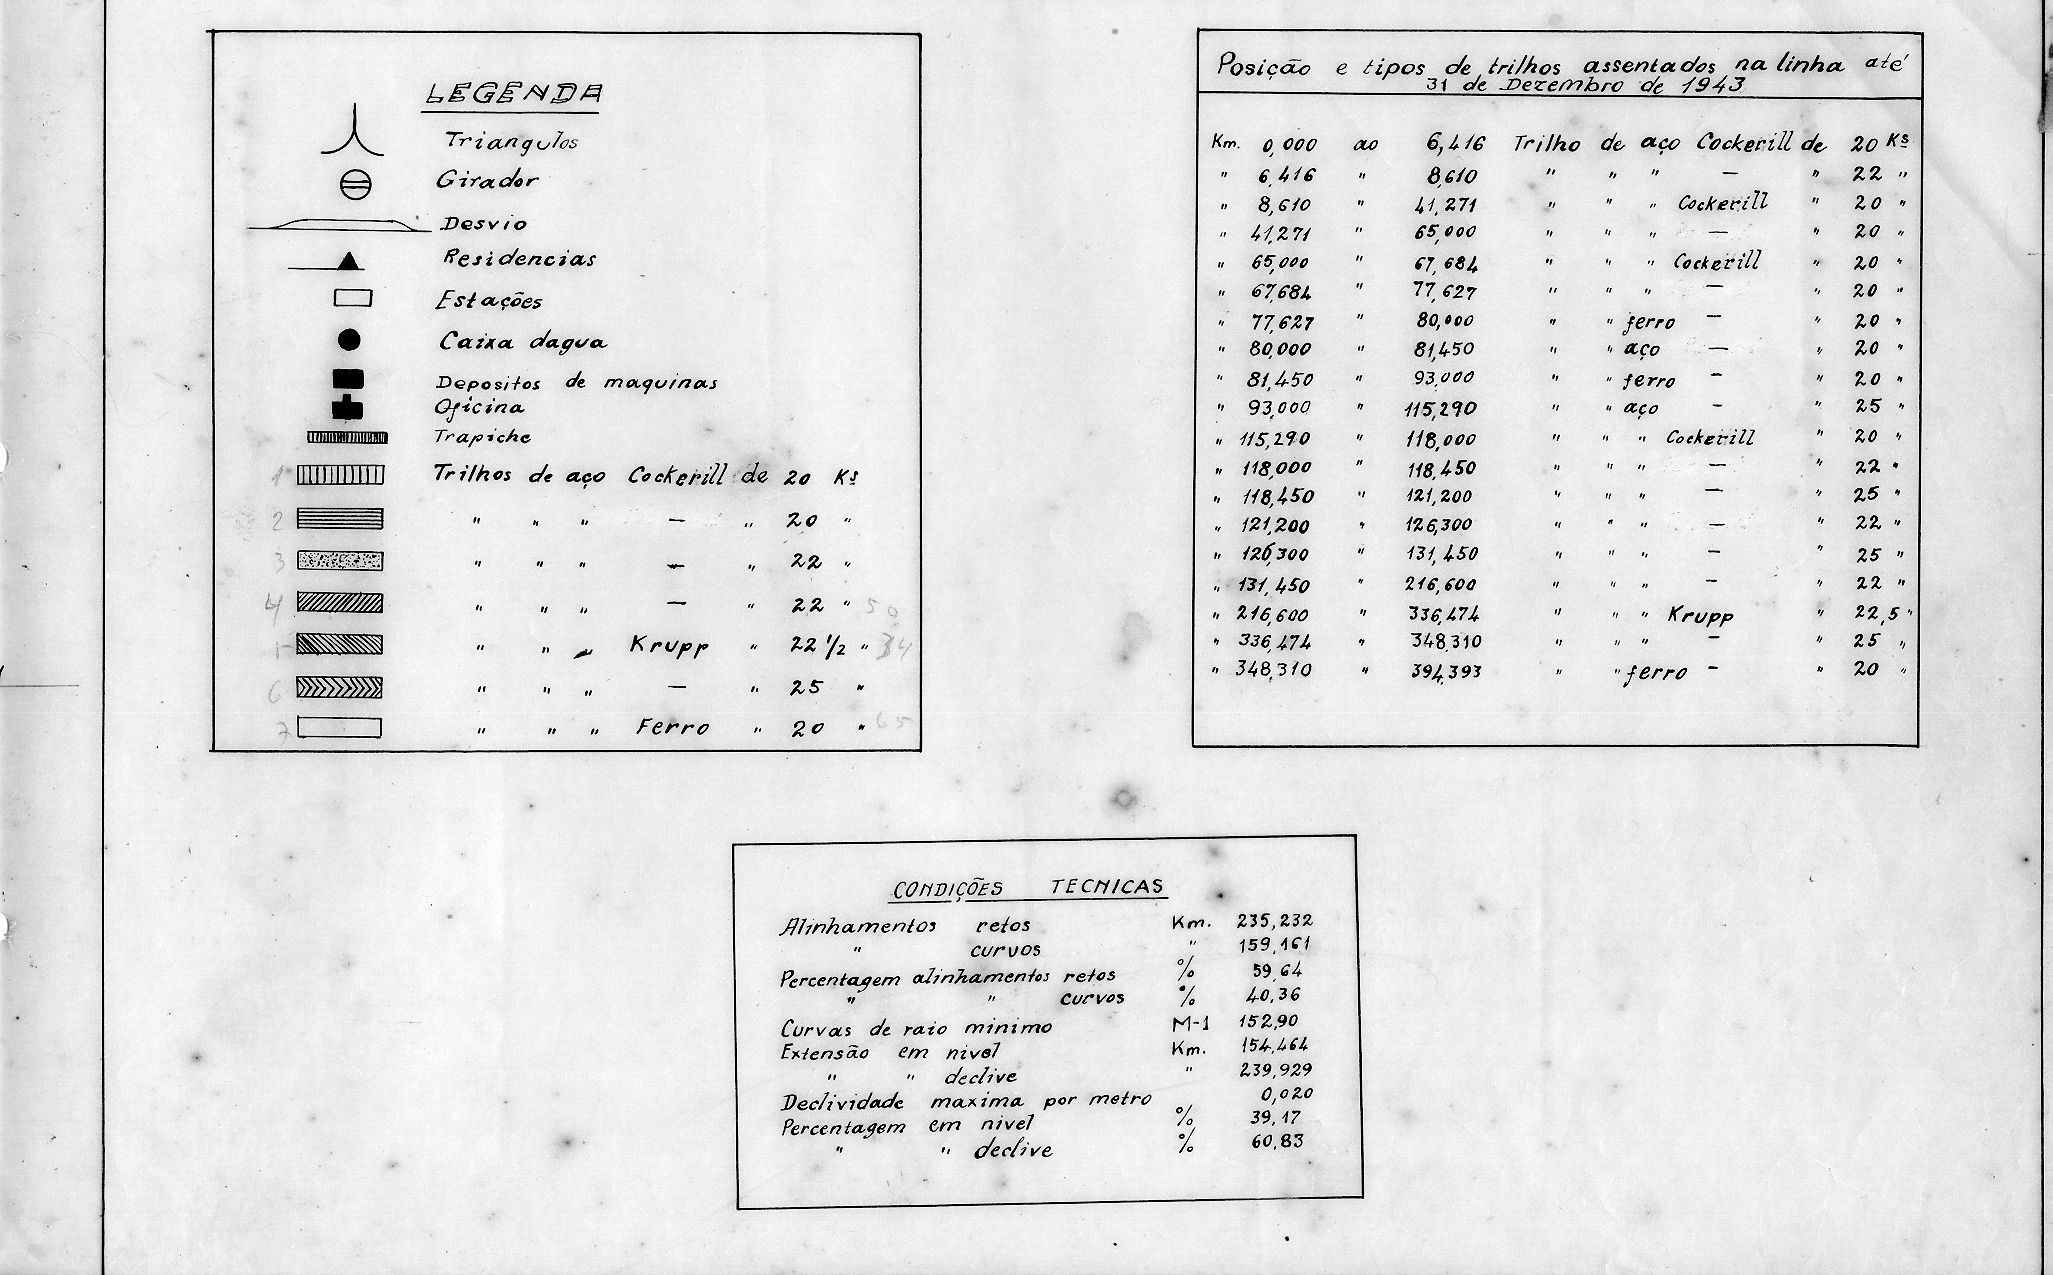 LEGENDA
Triangulos
Girador
Desvio
Residencias
Estações
Caixa dagua
Depositos de maquinas
Oficina
Trapiche
1 Trilhos de aço Cockerill de 20 Ks
2 " " " — " 20 "
3 " " " — " 22 "
4 " " " — " 22 " 50
" " " Krupp " 22 1/2 " 34
6 " " " — " 25 "
7 " " " Ferro " 20 " 65
Posição e tipos de trilhos assentados na linha até
31 de Dezembro de 1943
Km. 0,000 ao 6,416 Trilho de aço Cockerill de 20 Ks
" 6,416 " 8,610 " " " — " 22 "
" 8,610 " 41,271 " " " Cockerill " 20 "
" 41,271 " 65,000 " " " — " 20 "
" 65,000 " 67,684 " " " Cockerill " 20 "
" 67,684 " 77,627 " " " — " 20 "
" 77,627 " 80,000 " " ferro — " 20 "
" 80,000 " 81,450 " " aço — " 20 "
" 81,450 " 93,000 " " ferro — " 20 "
" 93,000 " 115,290 " " aço — " 25 "
" 115,290 " 118,000 " " " Cockerill " 20 "
" 118,000 " 118,450 " " " — " 22 "
" 118,450 " 121,200 " " " — " 25 "
" 121,200 " 126,300 " " " — " 22 "
" 126,300 " 131,450 " " " — " 25 "
" 131,450 " 216,600 " " " — " 22 "
" 216,600 " 336,474 " " " Krupp " 22,5 "
" 336,474 " 348,310 " " " — " 25 "
" 348,310 " 394,393 " " ferro — " 20 "
CONDIÇÕES TECNICAS
Alinhamentos retos Km. 235,232
" curvos " 159,161
Percentagem alinhamentos retos % 59,64
" " curvos % 40,36
Curvas de raio minimo M-1 152,90
Extensão em nivel Km. 154,464
" " declive " 239,929
Declividade maxima por metro 0,020
Percentagem em nivel % 39,17
" " declive % 60,83